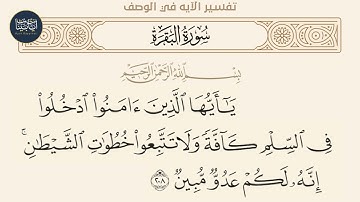 تفسير الآيه في الوصف
سُورَةُ البَقَرَةِ
بِسْمِ اللَّهِ الرَّحْمَٰنِ الرَّحِيمِ
يَـٰٓأَيُّهَا ٱلَّذِينَ ءَامَنُوا۟ ٱدْخُلُوا۟
فِى ٱلسِّلْمِ كَآفَّةً وَلَا تَتَّبِعُوا۟ خُطُوَٰتِ ٱلشَّيْطَـٰنِ ۚ
إِنَّهُۥ لَكُمْ عَدُوٌّ مُّبِينٌ ۝٢٠٨